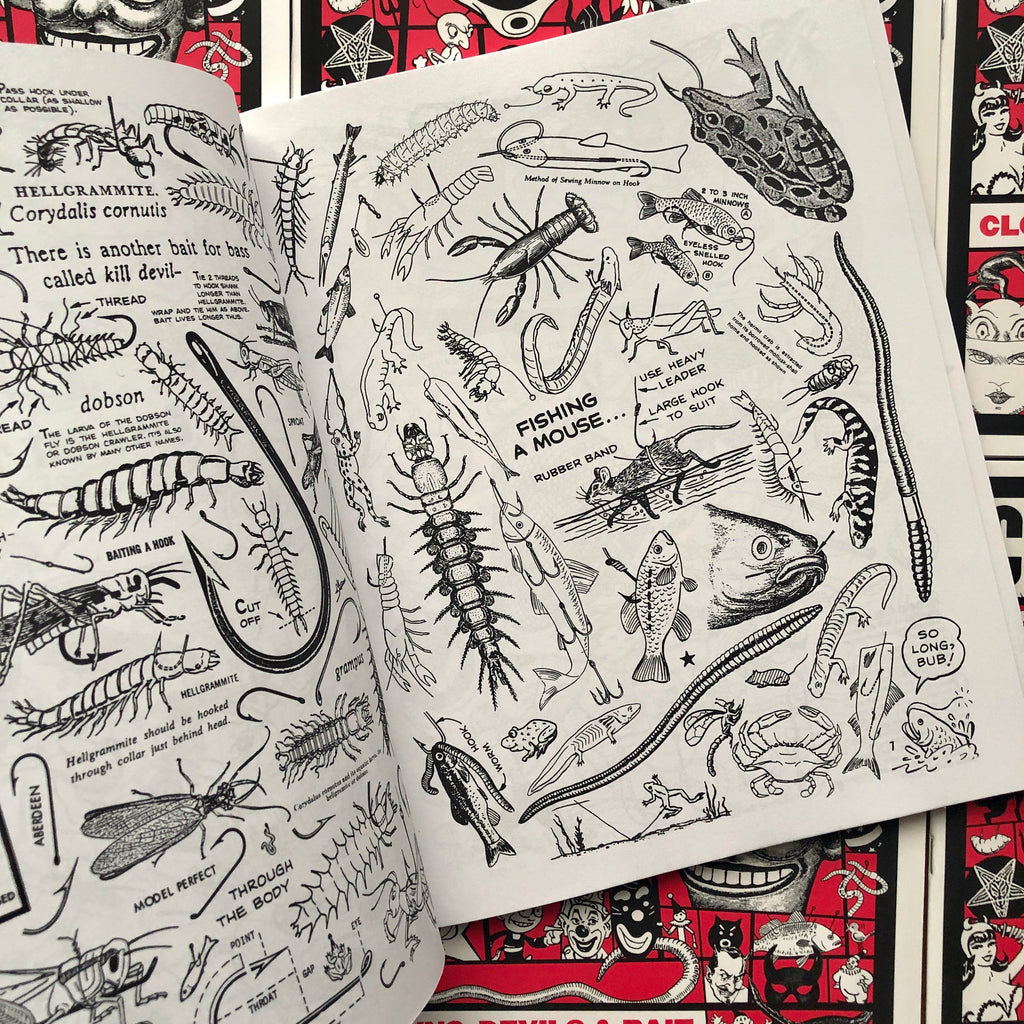 PASS HOOK UNDER
COLLAR (AS SHALLOW
AS POSSIBLE).
HELLGRAMMITE.
Corydalis cornutis
There is another bait for bass
called kill devil-
TIE 2 THREADS
TO HOOK SHANK
LONGER THAN
HELLGRAMMITE.
WRAP AND TIE HIM AS ABOVE.
BAIT LIVES LONGER THUS.
THREAD
dobson
THE LARVA OF THE DOBSON
FLY IS THE HELLGRAMMITE
OR DOBSON CRAWLER. IT'S ALSO
KNOWN BY MANY OTHER NAMES.
SPROAT
BAITING A HOOK
CUT
OFF
HELLGRAMMITE
grampus
Hellgrammite should be hooked
through collar just behind head.
ABERDEEN
MODEL PERFECT
THROUGH
THE BODY
POINT
EYE
GAP
THROAT
Method of Sewing Minnow on Hook
2 TO 3 INCH
MINNOWS
A
EYELESS
SNELLED
HOOK
B
USE HEAVY
LEADER
LARGE HOOK
TO SUIT
FISHING
A MOUSE...
RUBBER BAND
HOOK
WORM
SO
LONG,
BUB!
1
CLO
DEVILS & BAIT